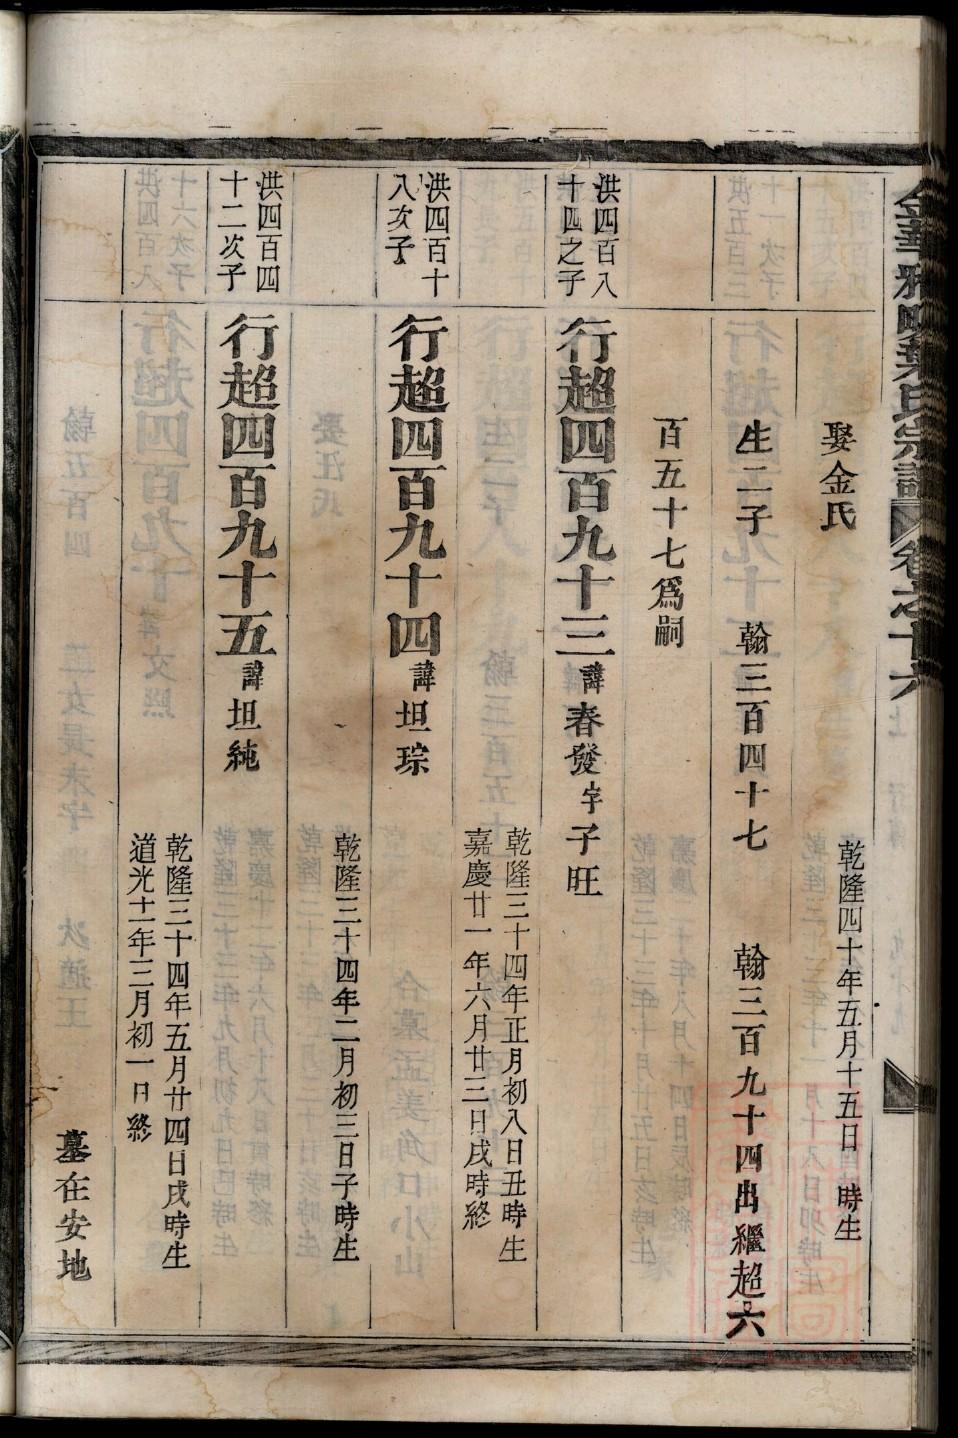 葉氏宗譜
卷之十六
娶金氏
乾隆四十年五月十五日 時生
生二子 翰三百四十七 翰三百九十四出繼超六
百五十七爲嗣
洪四百八
十四之子
行超四百九十三諱春發字子旺
乾隆三十四年正月初八日丑時生
嘉慶廿一年六月廿三日戌時終
洪四百十
八次子
行超四百九十四諱坦琮
乾隆三十四年二月初三日子時生
洪四百四
十二次子
行超四百九十五諱坦純
乾隆三十四年五月廿四日戌時生
道光十一年三月初一日終
墓在安地